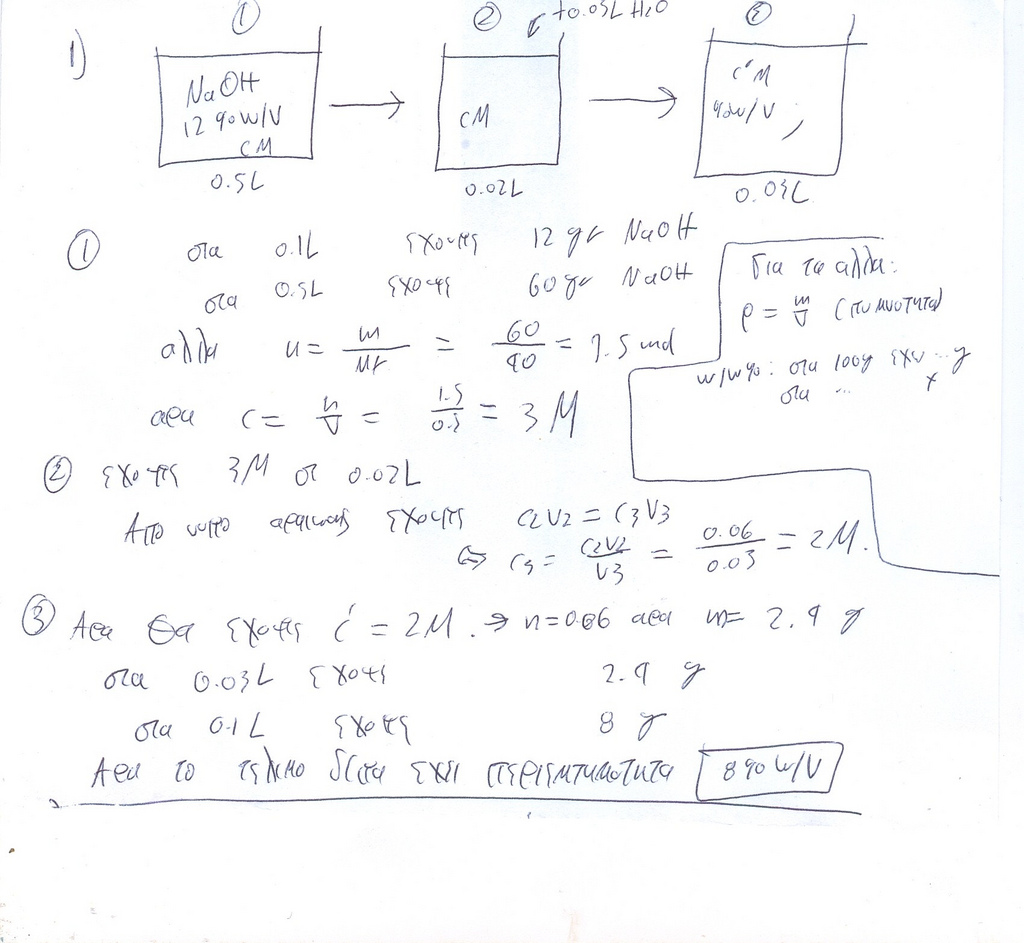 1) ① ② +0.01L H2O ③
NaOH
12 %w/V
CM
CM
C'M
%w/V ;
0.5L 0.02L 0.03L
① στα 0.1L έχουμε 12 gr NaOH
στα 0.5L έχουμε 60 gr NaOH
αλλα n = m/Mr = 60/40 = 1.5 mol
αρα C = n/V = 1.5/0.5 = 3 M
Για τα αλλα:
ρ = m/V (πυκνοτητα)
w/w%: στα 100g εχω ... g
στα ... x
② έχουμε 3M σε 0.02L
Απο νομο αραιωσης έχουμε C2V2 = C3V3
⇔ C3 = C2V2/V3 = 0.06/0.03 = 2M.
③ Αρα θα έχουμε C' = 2M. → n=0.06 αρα m= 2.4 g
στα 0.03L έχουμε 2.4 g
στα 0.1L έχουμε 8 g
Αρα το τελικο δ/μα έχει περιεκτικοτητα 8%w/V